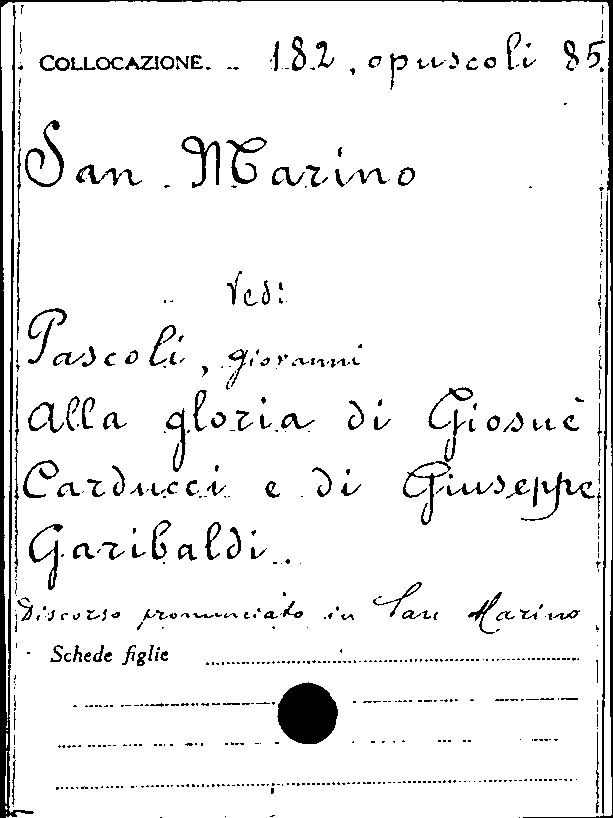 COLLOCAZIONE. 182, opuscoli 85
San Marino
Vedi:
Pascoli, Giovanni
Alla gloria di Giosuè
Carducci e di Giuseppe
Garibaldi.
Discorso pronunciato in San Marino
Schede figlie